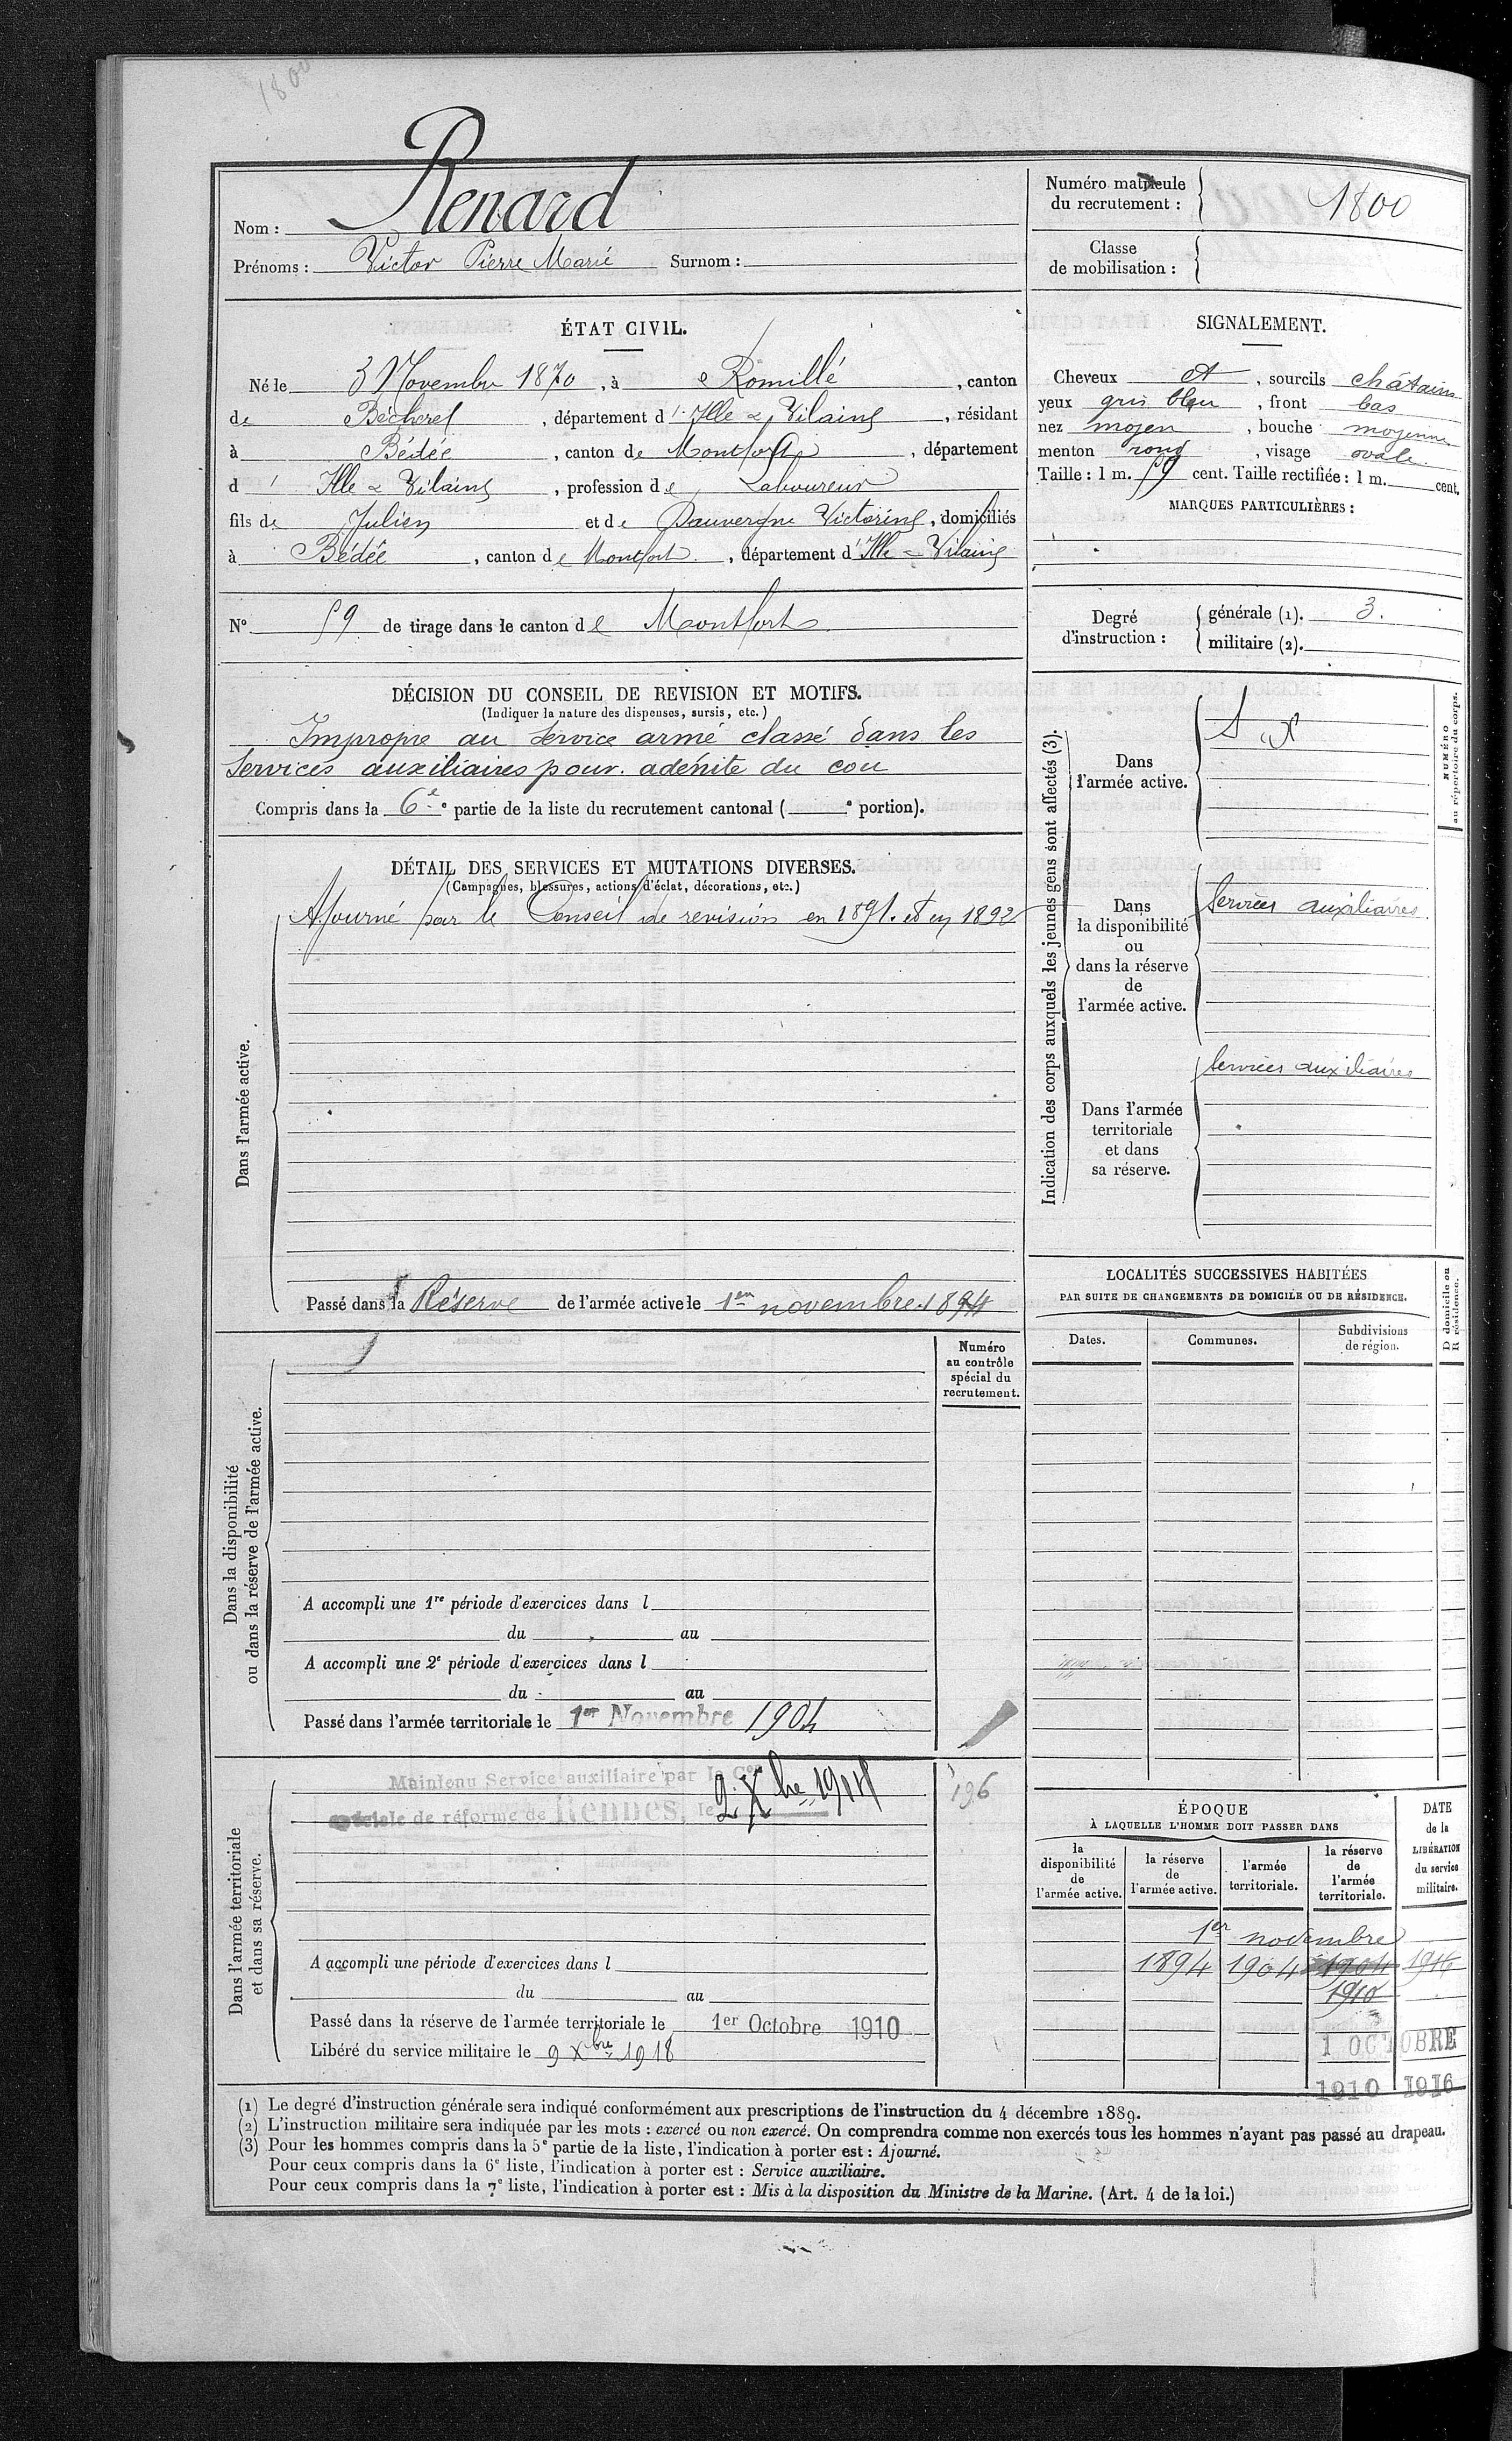 1800
Nom : Renard
Prénoms : Victor Pierre Marie Surnom :
Numéro matricule du recrutement : 1800
Classe de mobilisation :
ÉTAT CIVIL.
Né le 3 Novembre 1870, à Romillé, canton
de Bécherel, département d' Ille & Vilaine, résidant
à Bédée, canton de Montfort, département
d' Ille & Vilaine, profession de Laboureur
fils de Julien et de Dauvergne Victorine, domiciliés
à Bédée, canton de Montfort, département d' Ille & Vilaine
SIGNALEMENT.
Cheveux et, sourcils châtains
yeux gris bleu, front bas
nez moyen, bouche moyenne
menton rond, visage ovale.
Taille : 1 m. 59 cent. Taille rectifiée : 1 m. cent.
MARQUES PARTICULIÈRES :
N° 59 de tirage dans le canton de Montfort
Degré d'instruction : générale (1). 3.
militaire (2).
DÉCISION DU CONSEIL DE REVISION ET MOTIFS.
(Indiquer la nature des dispenses, sursis, etc.)
Impropre au service armé classé dans les
services auxiliaires pour adénite du cou
Compris dans la 6e e partie de la liste du recrutement cantonal ( e portion).
DÉTAIL DES SERVICES ET MUTATIONS DIVERSES.
(Campagnes, blessures, actions d'éclat, décorations, etc.)
Dans l'armée active.
Ajourné par le Conseil de revision en 1891 et en 1892
Passé dans la Réserve de l'armée active le 1er novembre 1894
Indication des corps auxquels les jeunes gens sont affectés (3).
NUMÉRO
au répertoire du corps.
Dans
l'armée active.
Dans
la disponibilité
ou
dans la réserve
de
l'armée active.
Services auxiliaires
Dans l'armée
territoriale
et dans
sa réserve.
Services auxiliaires
LOCALITÉS SUCCESSIVES HABITÉES
PAR SUITE DE CHANGEMENTS DE DOMICILE OU DE RÉSIDENCE.
Dates. Communes. Subdivisions de région.
D domicile ou
R résidence.
Dans la disponibilité
ou dans la réserve de l'armée active.
Numéro
au contrôle
spécial du
recrutement.
A accompli une 1re période d'exercices dans l
du au
A accompli une 2e période d'exercices dans l
du au
Passé dans l'armée territoriale le 1er Novembre 1904
Dans l'armée territoriale
et dans sa réserve.
Maintenu Service auxiliaire par la Con
spéciale de réforme de Rennes, le 2 Xbre 1914
196
A accompli une période d'exercices dans l
du au
Passé dans la réserve de l'armée territoriale le 1er Octobre 1910
Libéré du service militaire le 9 Xbre 1918
ÉPOQUE
À LAQUELLE L'HOMME DOIT PASSER DANS
la disponibilité de l'armée active.
la réserve de l'armée active.
l'armée territoriale.
la réserve de l'armée territoriale.
DATE de la LIBÉRATION du service militaire.
1er novembre
1894 1904 1904 1916
1910
1 OCTOBRE
1910 1916
(1) Le degré d'instruction générale sera indiqué conformément aux prescriptions de l'instruction du 4 décembre 1889.
(2) L'instruction militaire sera indiquée par les mots : exercé ou non exercé. On comprendra comme non exercés tous les hommes n'ayant pas passé au drapeau.
(3) Pour les hommes compris dans la 5e partie de la liste, l'indication à porter est : Ajourné.
Pour ceux compris dans la 6e liste, l'indication à porter est : Service auxiliaire.
Pour ceux compris dans la 7e liste, l'indication à porter est : Mis à la disposition du Ministre de la Marine. (Art. 4 de la loi.)